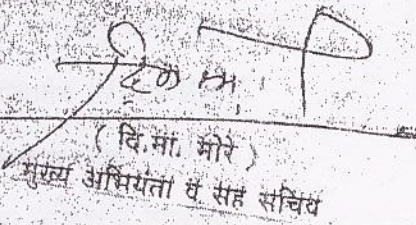 ( दि.मा. मोरे )
मुख्य अभियंता व सह सचिव